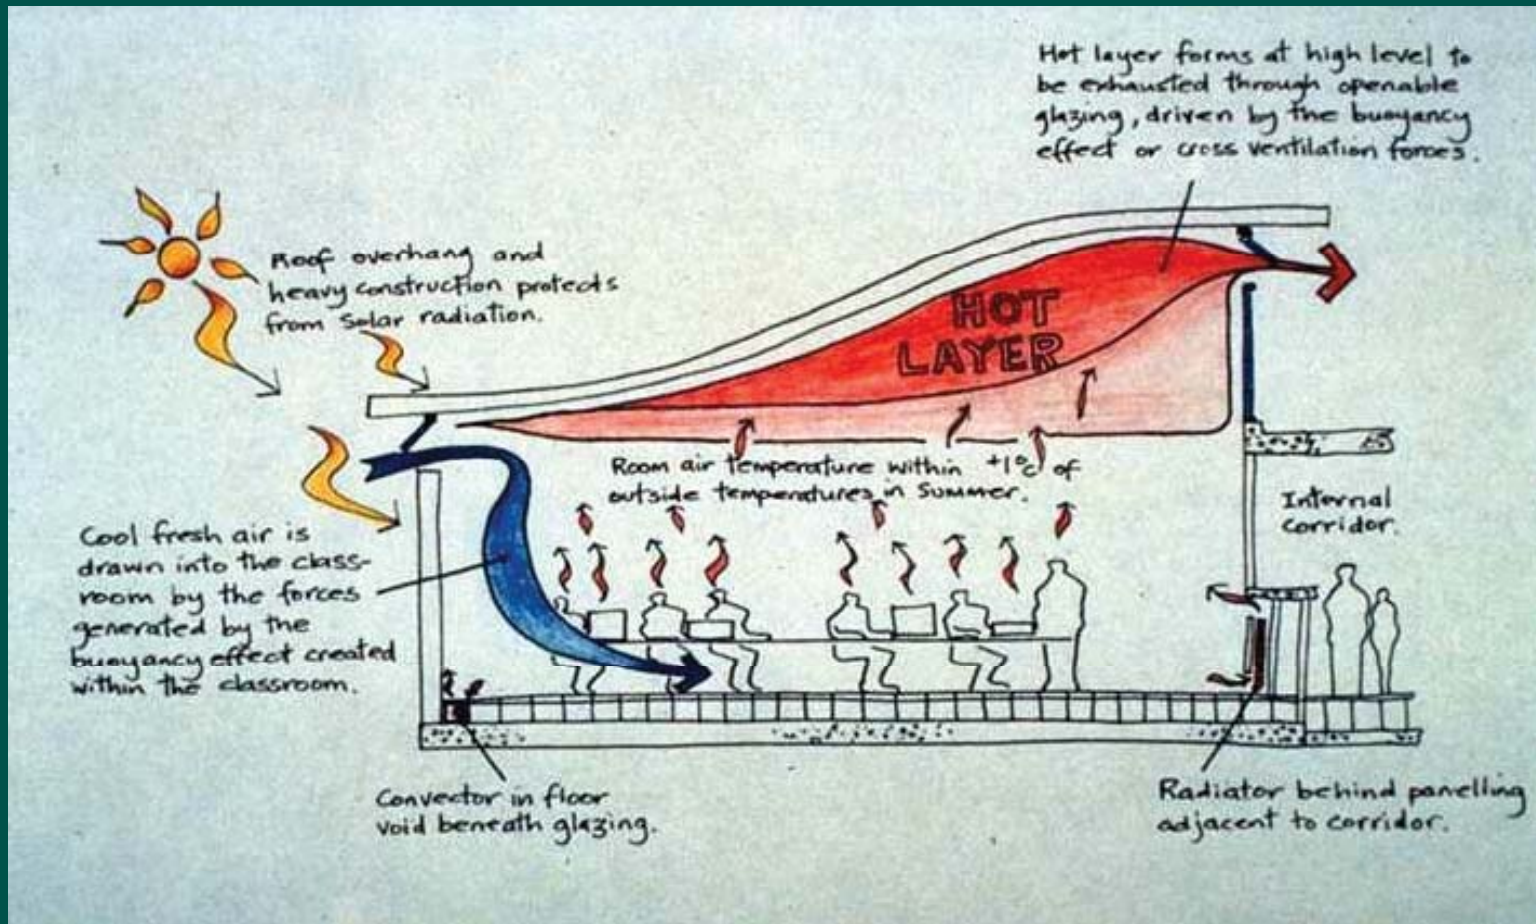 Hot layer forms at high level to
be exhausted through openable
glazing, driven by the buoyancy
effect or cross ventilation forces.
Roof overhang and
heavy construction protects
from Solar radiation.
HOT
LAYER
Room air temperature within +1°C of
outside temperatures in Summer.
Internal
corridor.
Cool fresh air is
drawn into the class-
room by the forces
generated by the
buoyancy effect created
within the classroom.
Convector in floor
void beneath glazing.
Radiator behind panelling
adjacent to corridor.